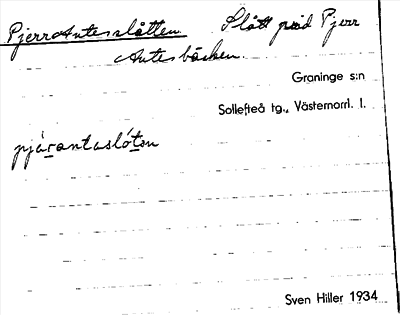 PjerrAntesslåtten Slått vid Pjerr
Antesbäcken.
Graninge s:n
Sollefteå tg., Västernorrl. l.
pjärantaslótən
Sven Hiller 1934